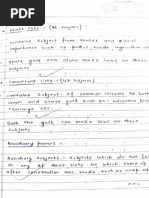 State Lists - (66 Subjects)
Contains Subject from States and Local
importance such as Police, trade, agriculture
State govt can alone make laws on these
Subjects
Concurrent Lists - (47 Subjects)
Contains Subject of common interest to both
union and State govt such as education,
Marriage etc
Both the govt can make laws on these
Subjects
Residuary Powers :-
Residuary Subjects - Subjects which do not fall
these lists.
after constitution was made such as